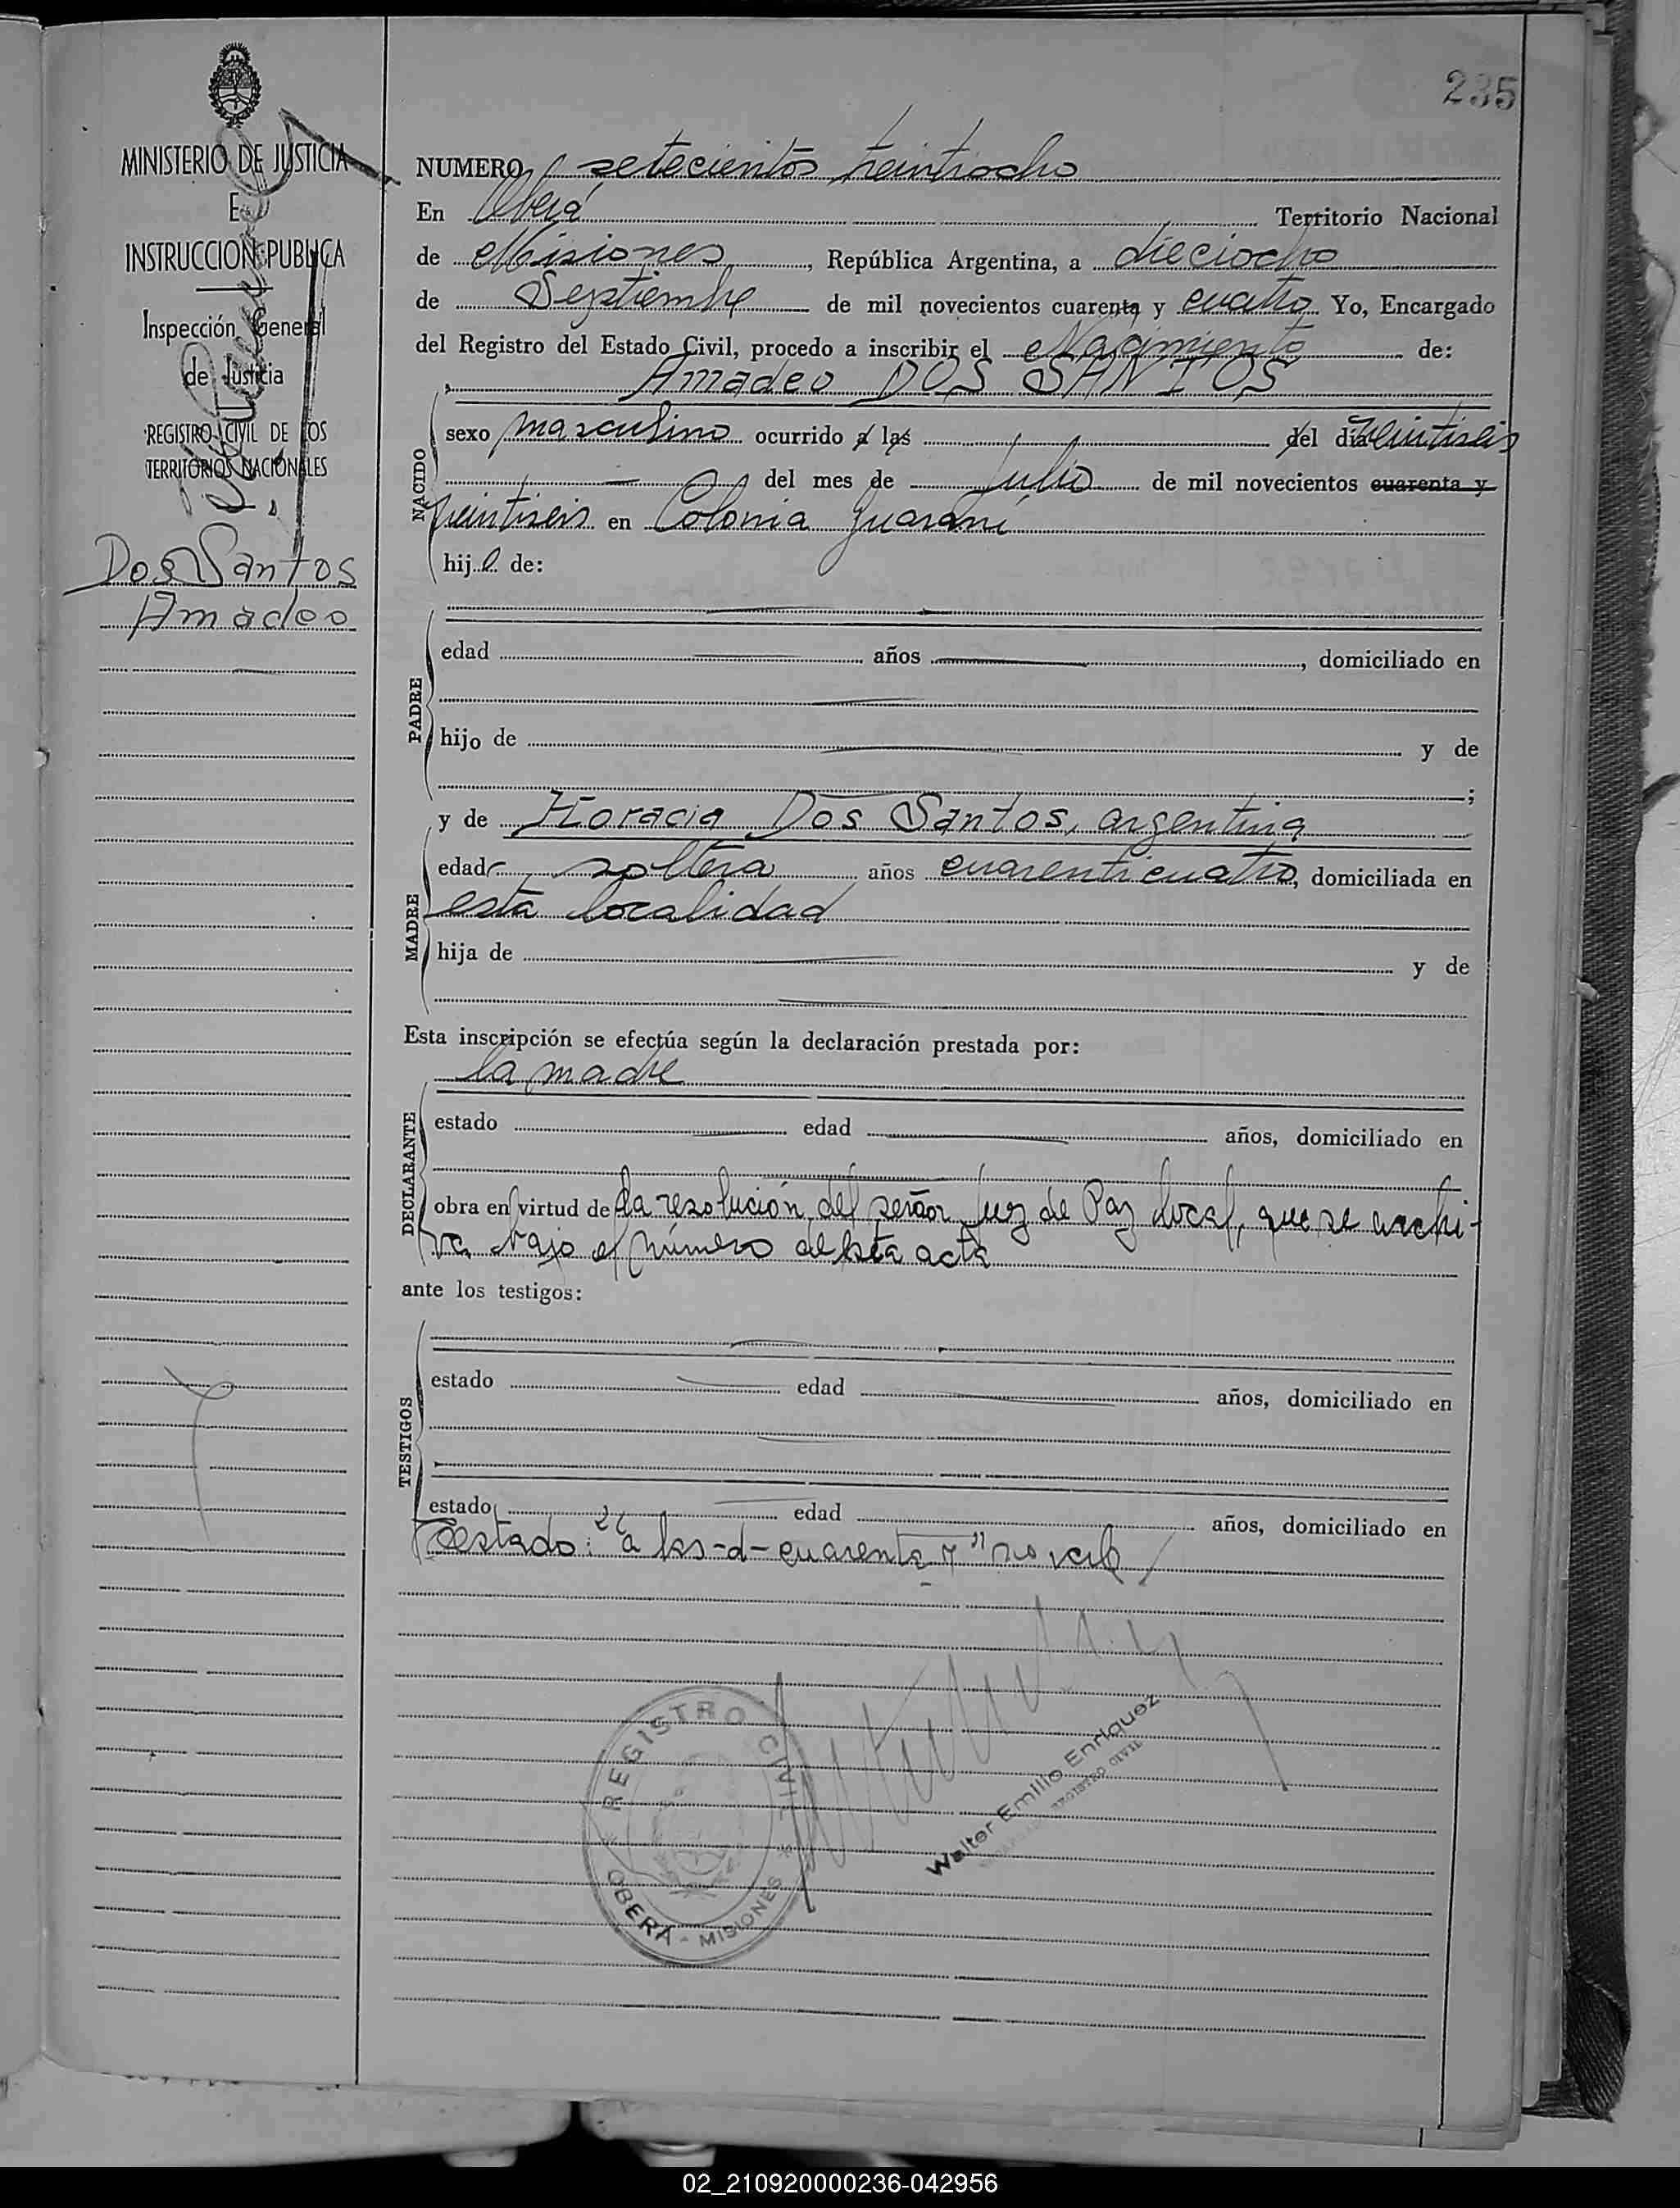 235
MINISTERIO DE JUSTICIA
E
INSTRUCCION PUBLICA
Inspección General
de Justicia
REGISTRO CIVIL DE LOS
TERRITORIOS NACIONALES
Dos Santos
Amadeo
NUMERO setecientos treintiocho
En Oberá Territorio Nacional
de Misiones, República Argentina, a dieciocho
de Septiembre de mil novecientos cuarenta y cuatro Yo, Encargado
del Registro del Estado Civil, procedo a inscribir el Nacimiento de:
Amadeo DOS SANTOS
NACIDO
sexo masculino ocurrido a las del día veintiseis
del mes de Julio de mil novecientos cuarenta y
veintiseis en Colonia Guaraní
hijo de:
PADRE
edad años , domiciliado en
hijo de y de
;
y de Horacia Dos Santos, argentina
MADRE
edad soltera años cuarenticuatro, domiciliada en
esta localidad
hija de y de
Esta inscripción se efectúa según la declaración prestada por:
la madre
DECLARANTE
estado edad años, domiciliado en
obra en virtud de la resolución del señor Juez de Paz local, que se archi-
va bajo el número de esta acta
ante los testigos:
TESTIGOS
estado edad años, domiciliado en
estado edad años, domiciliado en
Testado: "a las-d-cuarenta y" no vale
REGISTRO CIVIL
OBERÁ - MISIONES
Walter Emilio Enriquez
REGISTRO CIVIL
02_210920000236-042956